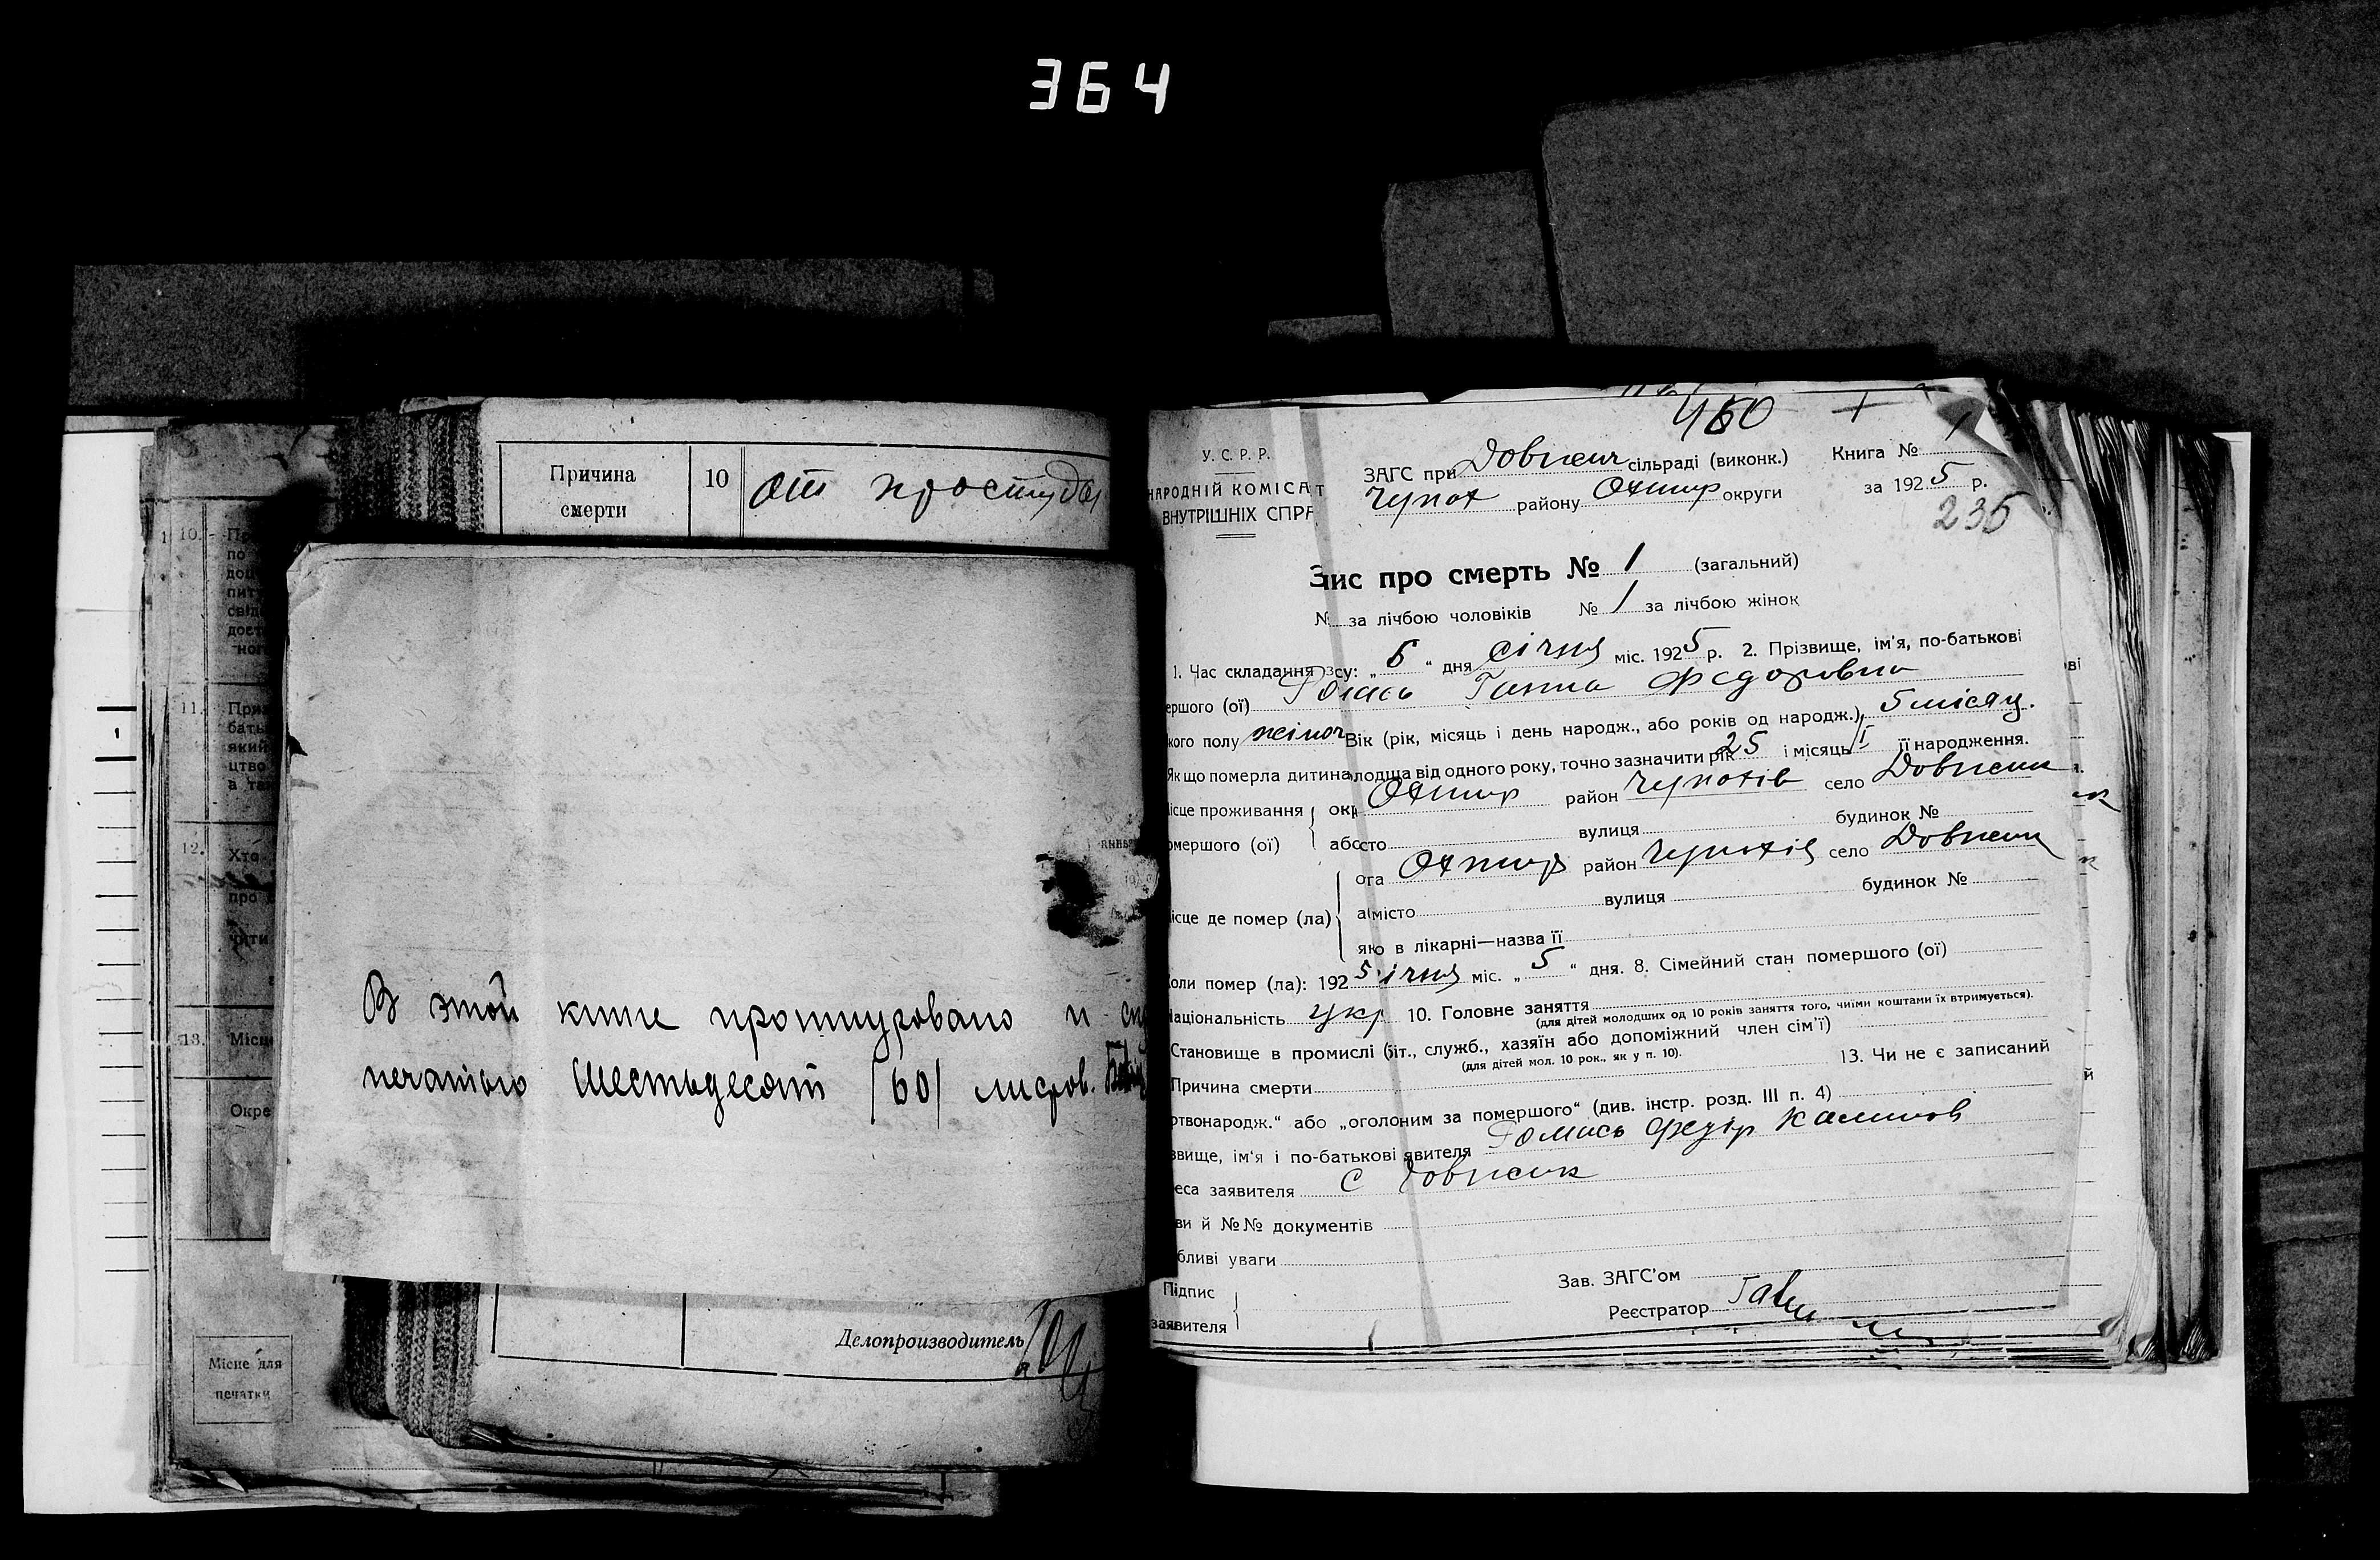 364
Причина
смерти
10
от простуды
10.
11.
12.
13. Місце
Окре
В этой книге прошнуровано и
печатью Шестьдесят /60/ листов.
Делопроизводитель
Місце для
печатки
460
1
У. С. Р. Р.
НАРОДНІЙ КОМІСАТ
ВНУТРІШНІХ СПРА
ЗАГС при Довжик сільраді (виконк.)
Чупах району Охтир округи
Книга № 1
за 1925 р.
235
Зпис про смерть № 1 (загальний)
№ за лічбою чоловіків № 1 за лічбою жінок
1. Час складання зсу: „6“ дня січня міс. 1925 р. 2. Прізвище, ім'я, по-батькові
ершого (ої) Ганна Федоровна
кого полу жіноч Вік (рік, місяць і день народж., або років од народж.) 5 місяц.
Якщо померла дитина лодша від одного року, точно зазначити рік 25 і місяць I її народження.
ісце проживання окр Охтир район Чупахів село Довжик
омершого (ої) або сто вулиця будинок №
ога Охтир район Чупахів село Довжик
ісце де помер (ла) або місто вулиця будинок №
якo в лікарні—назва її
Коли помер (ла): 1925 січня міс. „5“ дня. 8. Сімейний стан помершого (ої)
Національність укр 10. Головне заняття
(для дітей молодших од 10 років заняття того, чиїми коштами їх втримується).
Становище в промислі (літ., служб., хазяїн або допоміжний член сім'ї)
(для дітей мол. 10 рок., як у п. 10).
Причина смерти 13. Чи не є записаний
ртвонародж.“ або „оголоним за помершого“ (див. інстр. розд. III п. 4)
звище, ім'я і по-батькові явителя Федір Калинов
еса заявителя с Довжик
ви й №№ документів
бливі уваги
Підпис
заявителя
Зав. ЗАГС'ом
Реєстратор